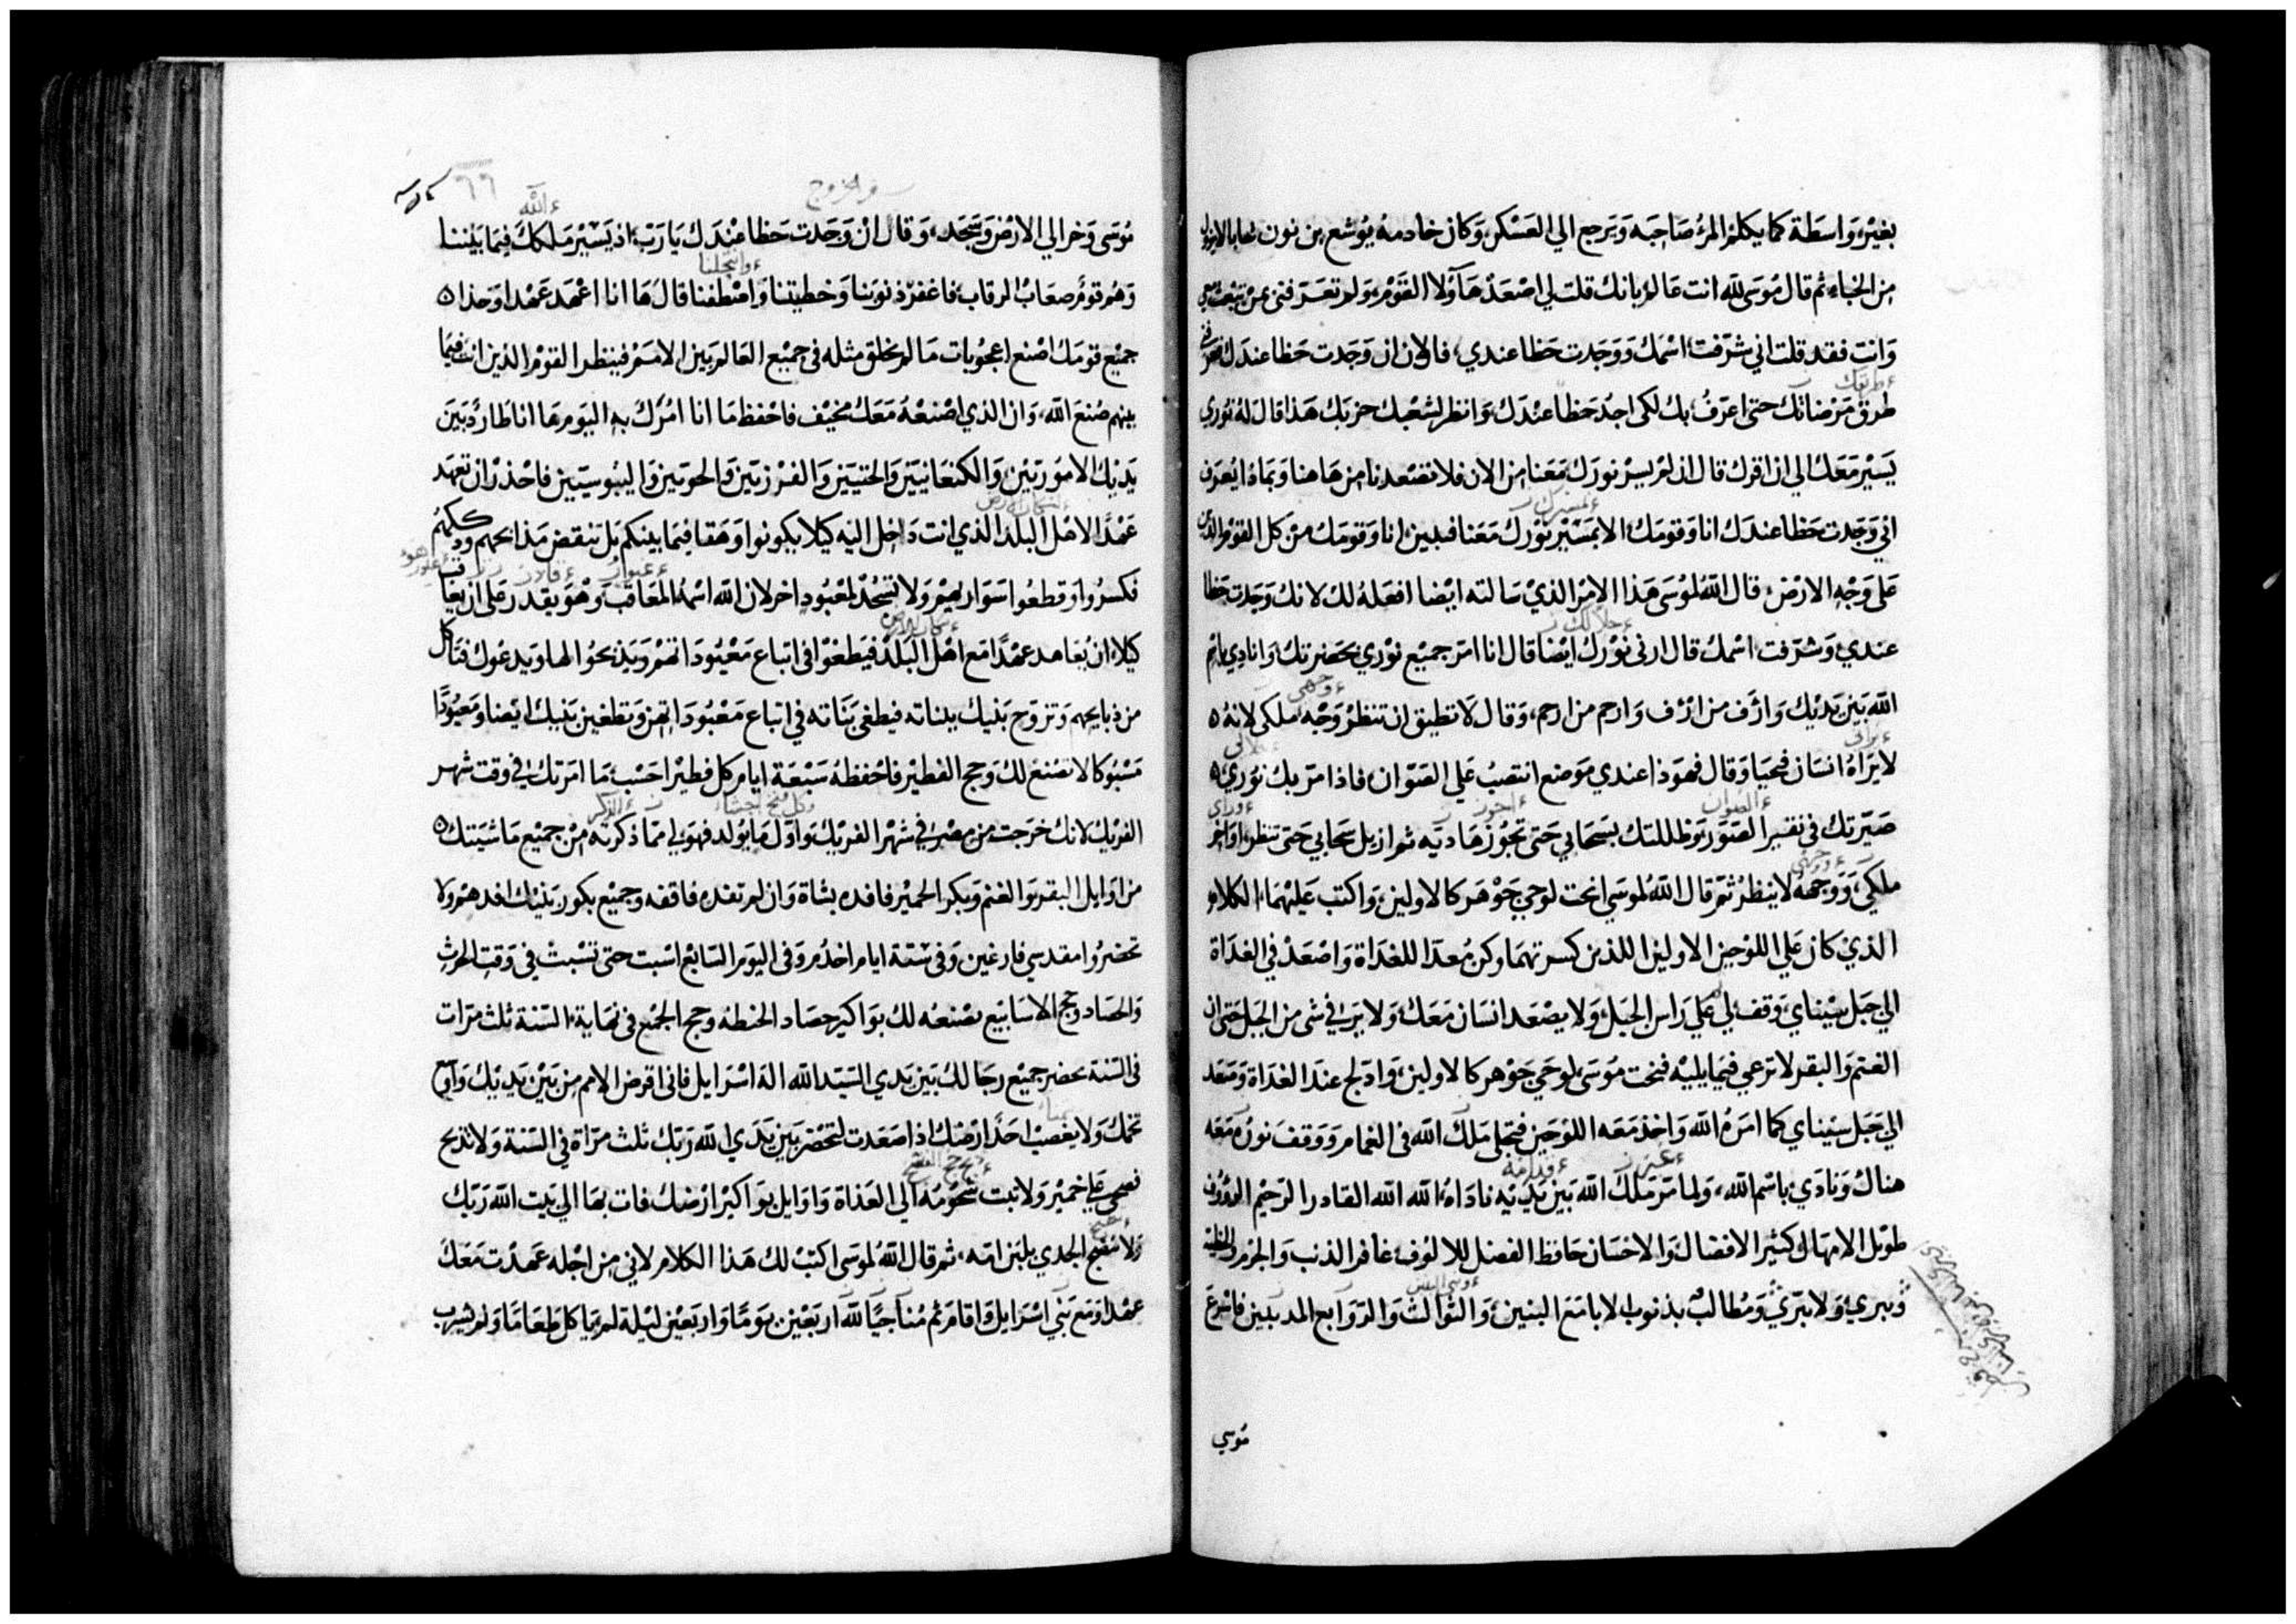 بغير واسطة كما يكلم المرء صاحبه ويرجع الي العسكر وكان خادمه يوشع بن نون شابا لا يزول
من الخباء ثم قال موسى لله انت عالم بانك قلت لي اصعد هاولا القوم ولم تعرفني بمن تبعث معي
وانت فقد قلت اني شرفت اسمك ووجدت حظا عندي فالان ان وجدت حظا عندك فعرفني
طرق مرضاتك حتى اعرف بك لكي اجد حظا عندك وانظر لشعبك حزبك هذا قال له نوري
يسير معك الي ان اقرك قال ان لم يسر نورك معنا من الان فلا تصعدنا من هاهنا وبماذا يعرف
اني وجدت حظا عندك انا وقومك الا بمسير نورك معنا فنبين انا وقومك من كل القوم الذين
على وجه الارض قال الله لموسى هذا الامر الذي سالته ايضا افعله لك لانك وجدت حظا
عندي وشرفت اسمك قال ارني نورك ايضا قال انا امر جميع نوري بحضرتك وانادي باسم
الله بين يديك وارف من ارف وارحم من ارحم وقال لا تطيق ان تنظر وجه ملكي لانه
لا يراه انسان فيحيا وقال فهوذا عندي موضع انتصب علي الصوان فاذا مر بك نوري
صيرتك في نقير الصور وظللتك بسحابي حتى تجوز هاديه ثم ازيل سحابي حتى تنظر اواخر
ملكي ووجهه لا ينظر ثم قال الله لموسى انحت لوحي جوهر كالاولين واكتب عليهما الكلام
الذي كان علي اللوحين الاولين اللذين كسرتهما وكن معدا للغداة واصعد في الغداة
الي جبل سيناي وقف لي علي راس الجبل ولا يصعد انسان معك ولا يرى في شي من الجبل حتى ان
الغنم والبقر لا ترعي فيما يليه فنحت موسى لوحي جوهر كالاولين وادلج عند الغداة وصعد
الي جبل سيناي كما امره الله واخذ معه اللوحين فتجلي ملك الله في الغمام ووقف نوره معه
هناك ونادي باسم الله ولما مر ملك الله بين يديه ناداه الله الله القادر الرحيم الرؤوف
طويل الامهال كثير الافضال والاحسان حافظ الفضل للالوف غافر الذنب والجرم والخطية
ويبري ولا يبري ومطالب بذنوب الابا مع البنين والثوالث والروابع المدنبين فاسرع
موسي
في الخروج
٦٦
موسى وخر الي الارض وسجد وقال ان وجدت حظا عندك يا رب اذ يسير ملكك فيما بيننا
وهم قوم صعاب الرقاب فاغفر ذنوبنا وخطيتنا واصطفنا قال ها انا اعهد عهدا وحذا
جميع قومك اصنع اعجوبات ما لم يخلق مثله في جميع العالم بين الامم فينظر القوم الذين انت فيما
بينهم صنع الله وان الذي اصنعه معك مخيف فاحفظ ما انا امرك به اليوم ها انا طارد بين
يديك الاموريين والكنعانيين والحتيين والفرزيين والحويين واليبوسيين فاحذر ان تعهد
عهدا لاهل البلد الذي انت داخل اليه كيلا يكونوا وهقا فيما بينكم بل تنقض مذابحهم ودككهم
فكسروا وقطعوا سواريهم ولا تسجد لمعبود اخر لان الله اسمه المعاقب وهو يقدر على ان يعاقب
كيلا ان يعاهد عهدا مع اهل البلد فيطغوا في اتباع معبوداتهم ويذبحوا لها ويدعوك فتاكل
من ذبايحهم وتزوج بنيك ببناته فيطغي بناته في اتباع معبوداتهن وتطغين بنيك ايضا ومعبودا
مسبوكا لا تصنع لك وحج الفطير فاحفظه سبعة ايام كل فطيرا حسب ما امرتك في وقت شهر
الفريك لانك خرجت من مصر في شهر الفريك واول ما يولد فهو لي مما ذكرته من جميع ماشيتك
من اوايل البقر والغنم وبكر الحمير فافده بشاة وان لم تفده فاقفه وجميع بكور بنيك افدهم ولا
تحضروا مقدسي فارغين وفي ستة ايام اخدم وفي اليوم السابع اسبت حتى تسبت في وقت الحرث
والحصاد وحج الاسابيع تصنعه لك بواكير حصاد الحنطه وحج الجمع في نهاية السنة ثلث مرات
في السنة يحضر جميع رجالك بين يدي السيد الله اله اسرايل فاني اقرض الامم من بين يديك واوسع
تخمك ولا يغصب احد ارضك اذا صعدت لتحضر بين يدي الله ربك ثلث مراة في السنة ولا تذبح
فصحي علي خمير ولا تبت شحومه الي الغداة واوايل بواكير ارضك فات بها الي بيت الله ربك
ولا تنضج الجدي بلبن امه ثم قال الله لموسى اكتب لك هذا الكلام لاني من اجله عهدت معك
عهدا ومع بني اسرايل واقام ثم مناجيا لله اربعين يوما واربعين ليلة لم ياكل طعاما ولم يشرب